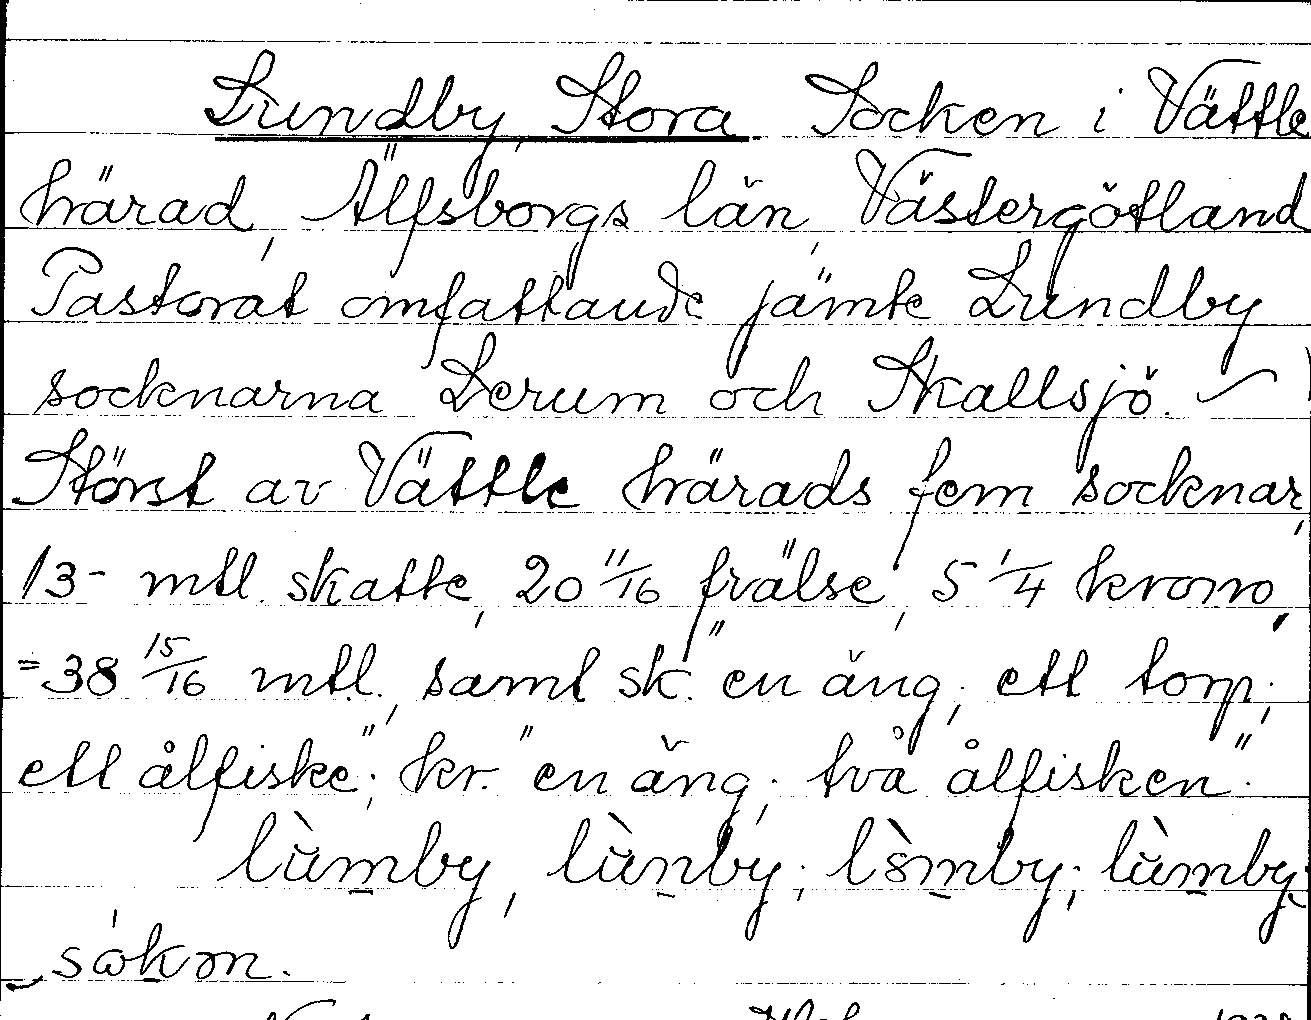 Lundby, Stora. Socken i Vättle
härad, Älfsborgs län, Västergötland
Pastorat omfattande jämte Lundby
socknarna Lerum och Skallsjö. –
Störst av Vättle härads fem socknar,
13 - mtl. skatte, 20 11/16 frälse, 5 1/4 krono,
= 38 15/16 mtl., samt sk. "en äng; ett torp;
ett ålfiske"; kr. "en äng; två ålfisken".
lùmby, lùnby; lə̀mby; lùmby-